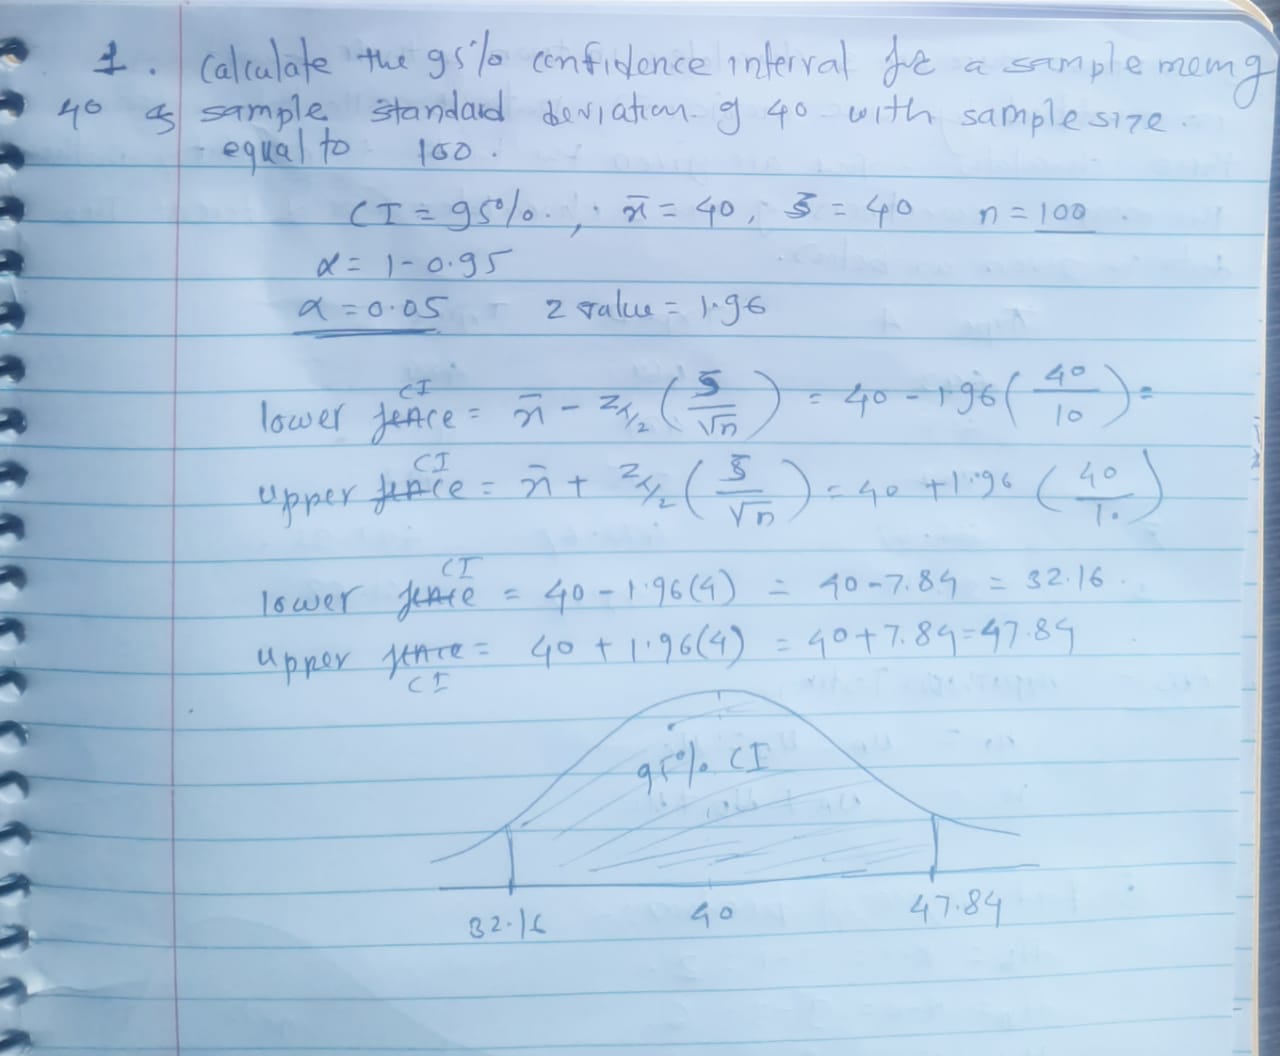 1. Calculate the 95% confidence interval for a sample mean of
40 & sample standard deviation of 40 with sample size
equal to 100.
CI = 95%., x̄ = 40, s = 40 n = 100
α = 1-0.95
α = 0.05 z value = 1.96
CI
lower fence = x̄ - z α/2 (s/√n) = 40 - 1.96(40/10) =
CI
upper fence = x̄ + z α/2 (s/√n) = 40 + 1.96 (40/10)
CI
lower fence = 40 - 1.96(4) = 40 - 7.84 = 32.16.
upper fence = 40 + 1.96(4) = 40 + 7.84 = 47.84
CI
95% CI
32.16 40 47.84